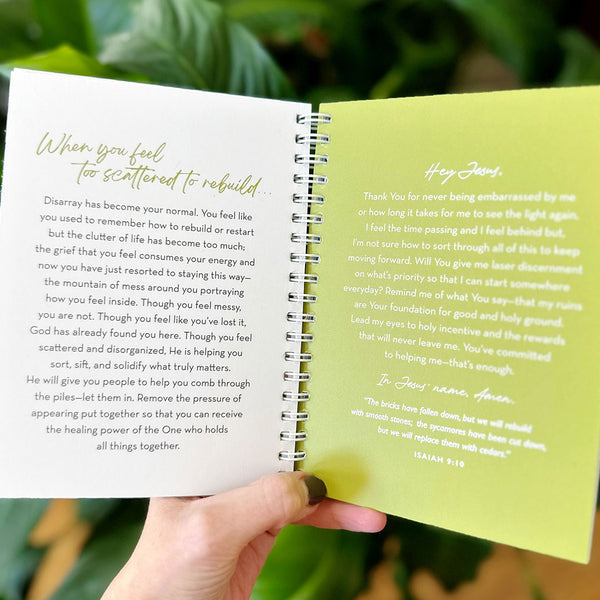 When you feel
too scattered to rebuild...
Disarray has become your normal. You feel like
you used to remember how to rebuild or restart
but the clutter of life has become too much;
the grief that you feel consumes your energy and
now you have just resorted to staying this way—
the mountain of mess around you portraying
how you feel inside. Though you feel messy,
you are not. Though you feel like you've lost it,
God has already found you here. Though you feel
scattered and disorganized, He is helping you
sort, sift, and solidify what truly matters.
He will give you people to help you comb through
the piles—let them in. Remove the pressure of
appearing put together so that you can receive
the healing power of the One who holds
all things together.
Hey Jesus,
Thank You for never being embarrassed by me
or how long it takes for me to see the light again.
I feel the time passing and I feel behind but,
I'm not sure how to sort through all of this to keep
moving forward. Will You give me laser discernment
on what's priority so that I can start somewhere
everyday? Remind me of what You say—that my ruins
are Your foundation for good and holy ground.
Lead my eyes to holy incentive and the rewards
that will never leave me. You've committed
to helping me—that's enough.
In Jesus' name, Amen.
"The bricks have fallen down, but we will rebuild
with smooth stones; the sycamores have been cut down,
but we will replace them with cedars."
ISAIAH 9:10